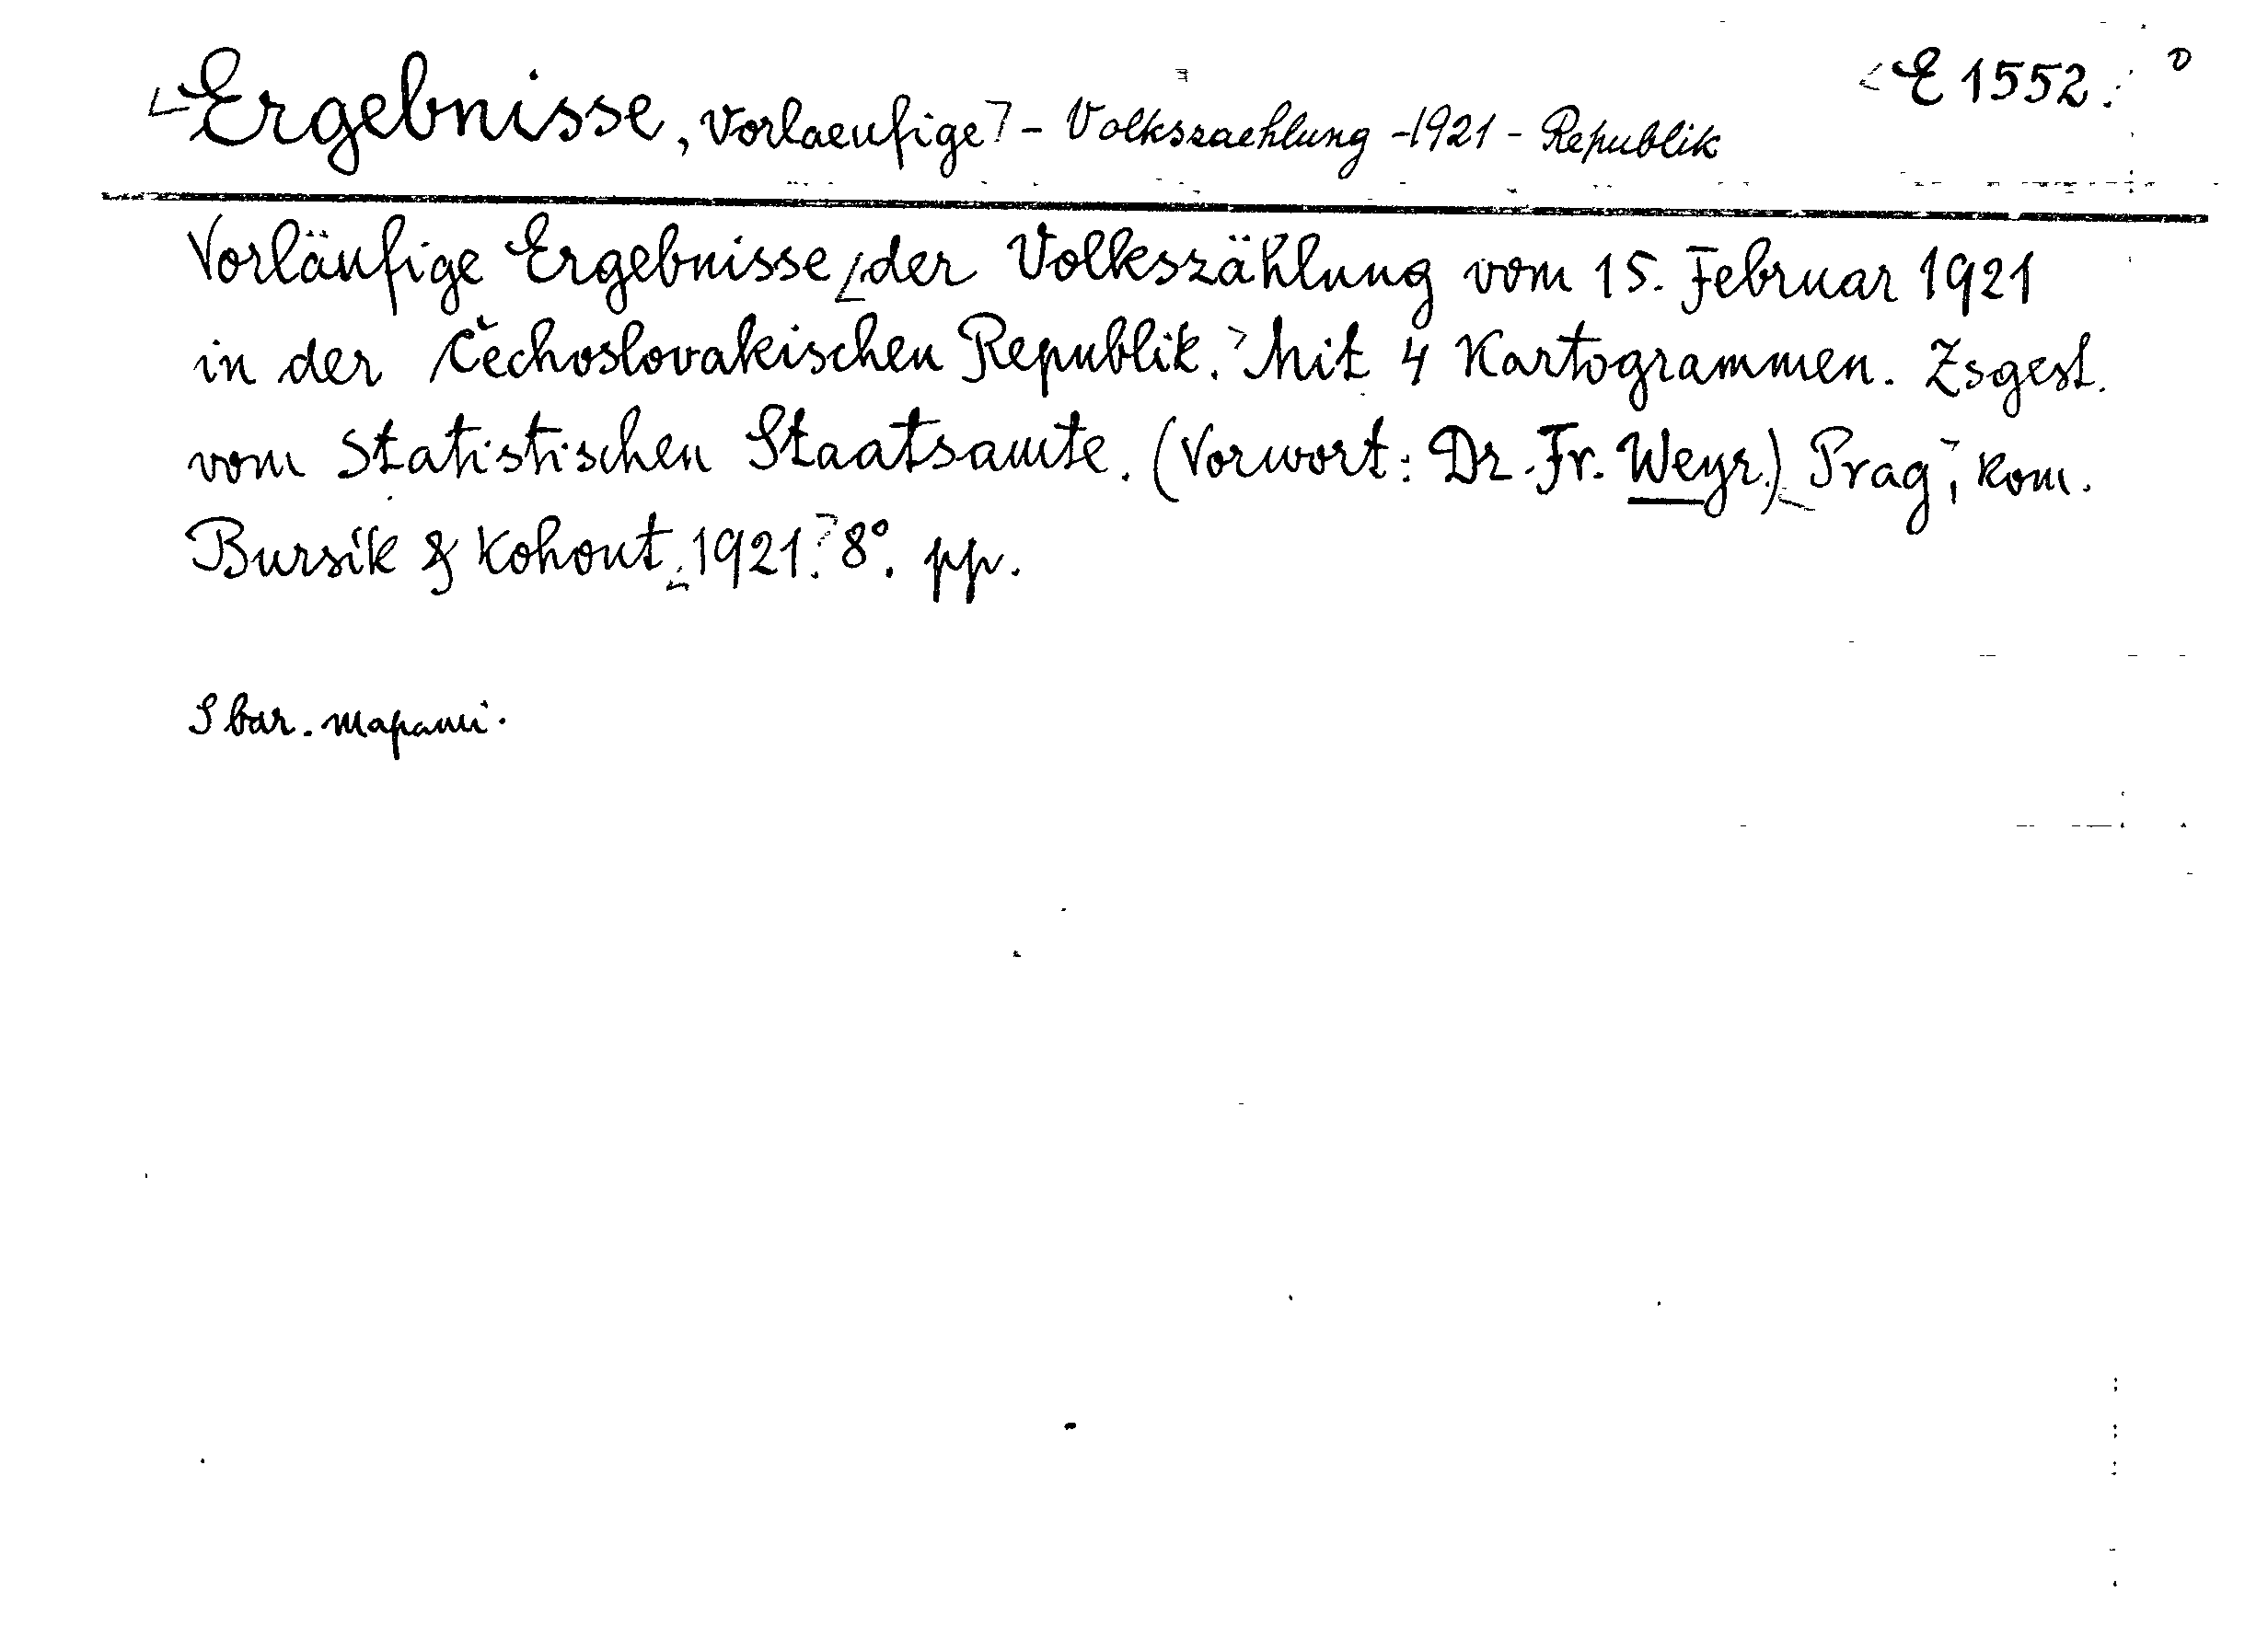 Ergebnisse, vorlaeufige - Volkszaehlung - 1921 - Republik
E 1552.
Vorläufige Ergebnisse der Volkszählung vom 15. Februar 1921
in der Čechoslovakischen Republik. Mit 4 Kartogrammen. Zsgest.
vom Statistischen Staatsamte. (Vorwort: Dr. Fr. Weyr.) Prag, kom.
Bursík & Kohout 1921. 8°. pp.
S bar. mapami.